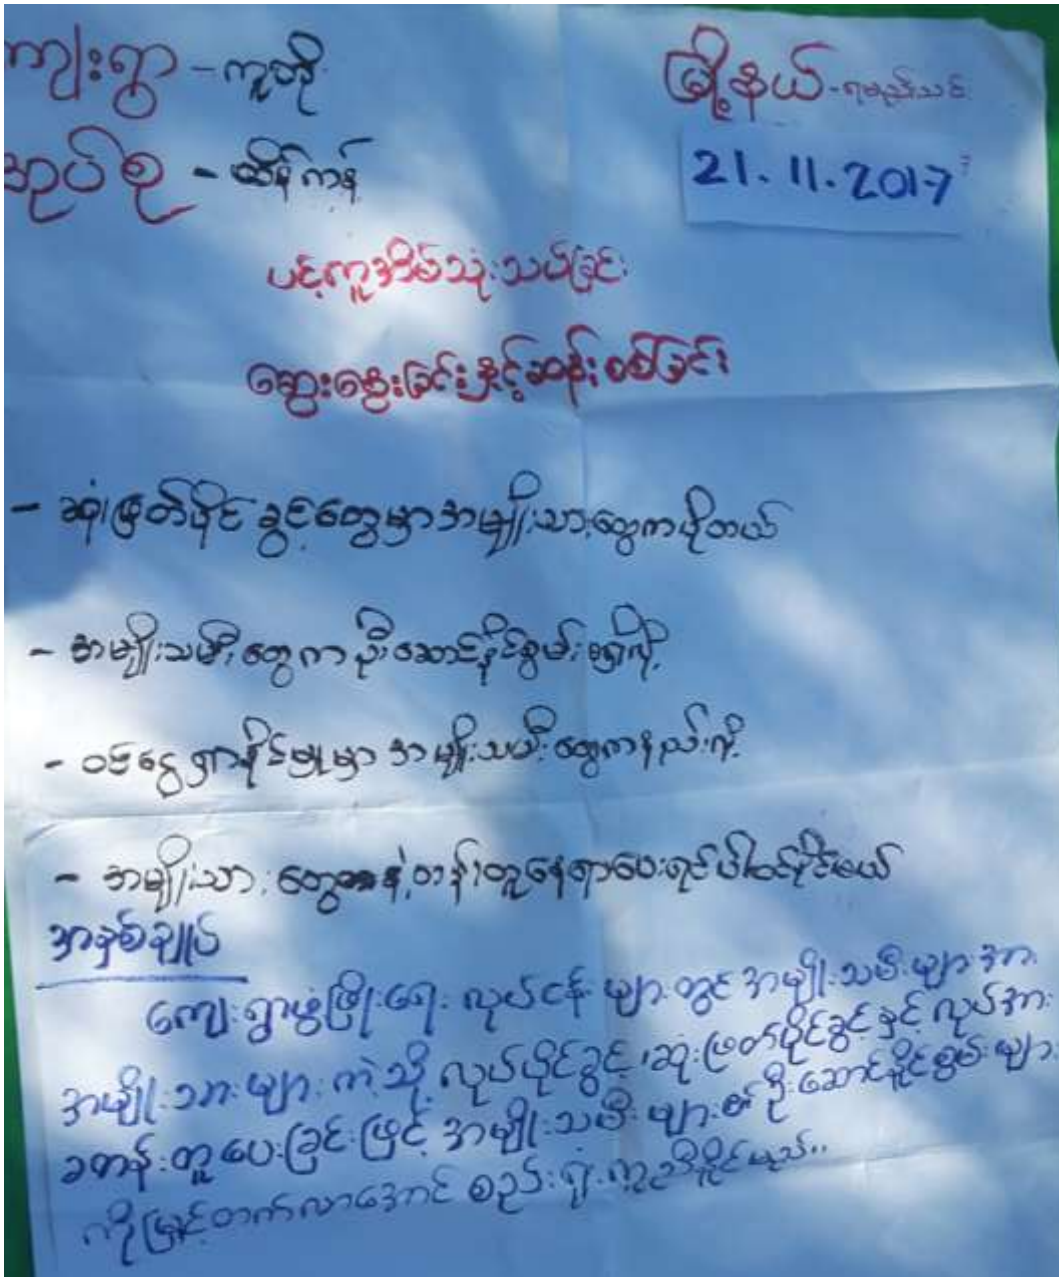 ကျေးရွာ - ကူတို့ မြို့နယ် - ရမည်းသင်း
အုပ်စု - ထိန်ကန် 21.11.2017
ပင့်ကူအိမ်သုံးသပ်ခြင်း
ဆွေးနွေးခြင်းနှင့်ဆန်းစစ်ခြင်း
- ဆုံးဖြတ်ပိုင်ခွင့်တွေမှာအမျိုးသားတွေကပိုတယ်
- အမျိုးသမီးတွေကဦးဆောင်နိုင်စွမ်းမရှိလို့
- ဝင်ငွေရှာနိုင်မှုမှာအမျိုးသမီးတွေကနည်းလို့
- အမျိုးသားတွေနဲ့တန်းတူနေရာပေးရင်ပါဝင်နိုင်မယ်
အနှစ်ချုပ်
ကျေးရွာဖွံ့ဖြိုးရေးလုပ်ငန်းများတွင်အမျိုးသမီးများအား
အမျိုးသားများကဲ့သို့လုပ်ပိုင်ခွင့်၊ဆုံးဖြတ်ပိုင်ခွင့်နှင့်လုပ်အား
ခတန်းတူပေးခြင်းဖြင့်အမျိုးသမီးများ၏ဦးဆောင်နိုင်စွမ်းများ
ကိုမြှင့်တက်လာအောင်စည်းရုံးကူညီနိုင်မည်။